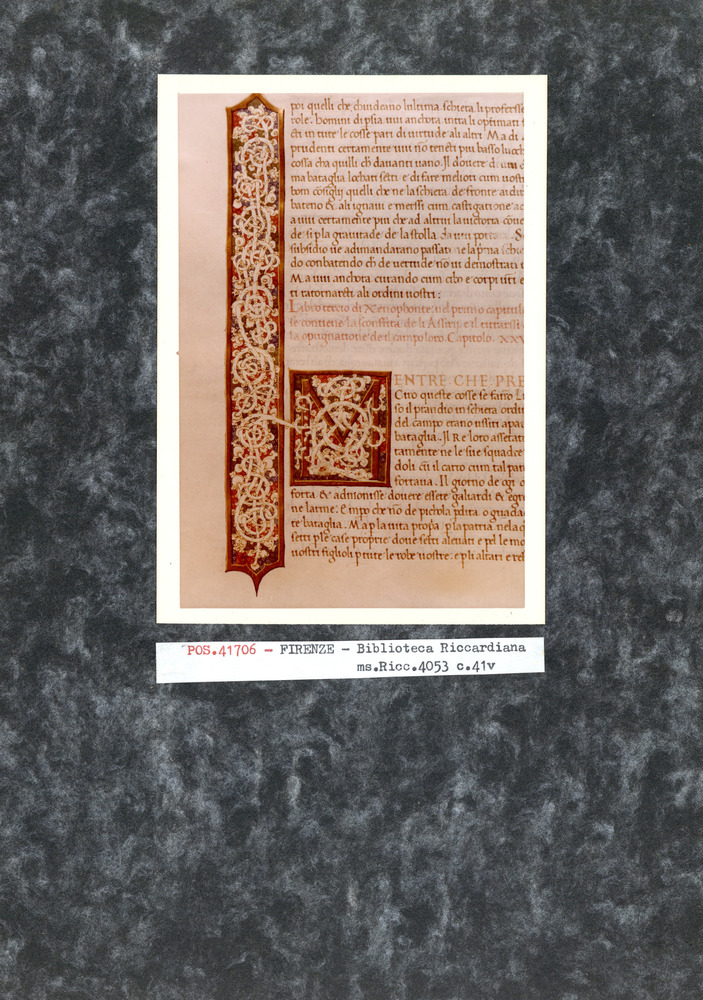 poi quelli che chiudeano lultima schiera li proferse
role. homini di psia uui anchora intra li optimati
cti in tute le cosse pari di uirtude ali altri. Ma di
prudenti certamente uui nō teneti piu basso luocho
cossa cha quilli ch davanti uano. Il douere
ma bataglia lochati seti e di fare meliori cum uostri
boni consigli quelli che ne la schiera de fronte
bateno & ali ignaui e messi cum castigatione
a uui certamente piu che ad altrui la uictoria
de si p la grauitade de la stolla da uui
subsidio ue adimandarano passati ne la pria
do conbatendo ch de uertude nō ui demostrati
Ma uui anchora curando cum cibo e corpi ustri e
ti ratornareti ali ordini uostri:
Libro tercio di Xenophonte nel primo capitulo
se contiene la sconfita de li Assirij e il ritrarsi
la opugnatione de il campo loro. Capitolo. XXV
MENTRE CHE PRE
Ciro queste cosse se fano
so il prandio in schiera
del campo erano ussiti
bataglia. Il Re loro
tamente ne le sue squadre
doli cū il carro cum tal
fortaua. Il giorno de ogi
forta & admonisse douere essere galiardi &
ne larme: e inpo che nō de pichola pdita o
re bataglia. Ma pla uita propia pla patria nela
seti p le case proprie doue seti aleuati e pel
uostri figlioli p tute le robe uostre: e pli altari e
POS.41706 - FIRENZE - Biblioteca Riccardiana
ms.Ricc.4053 c.41v